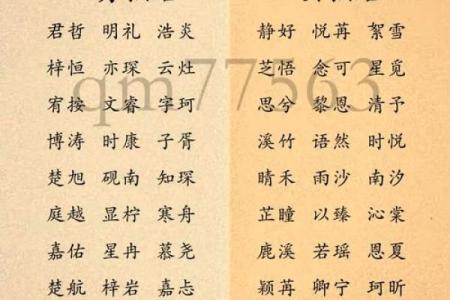 君哲 明礼 浩炎
梓恒 亦琛 云灶
宥按 文睿 宇珂
博涛 时康 子胥
楚旭 砚南 知琛
庭越 显柠 寒舟
嘉佑 星冉 慕尧
楚航 梓岩 嘉忐
静好 悦苒 絮雪
芝悟 念可 星觅
思兮 黎恩 清予
溪竹 语然 时悦
晴禾 雨沙 南汐
芷瞳 以臻 沁棠
鹿溪 若瑶 恩夏
颖苒 卿宁 珂昕
qm77563